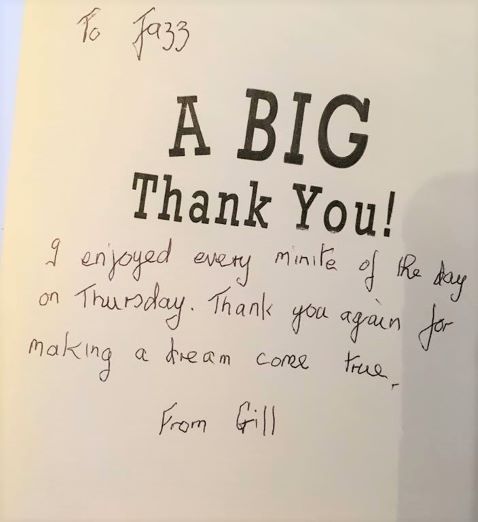 To Jazz
A BIG
Thank You!
I enjoyed every minite of the day
on Thursday. Thank you again for
making a dream come true.
From Gill